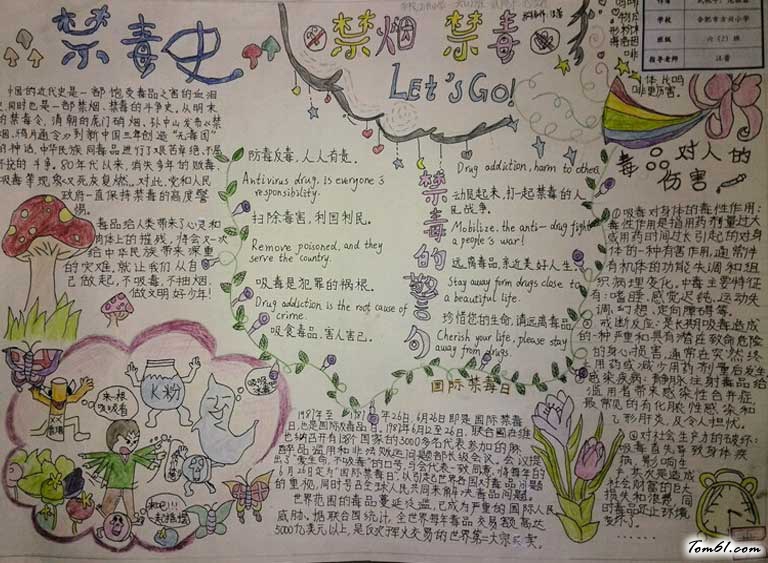 禁毒史
中国的近代史是一部饱受毒品之害的血泪
史,同时也是一部禁烟、禁毒的斗争史。从明末
的禁毒令,清朝的虎门硝烟,孙中山发令《禁
到新中国三年创造"无毒国"
的神话,中华民族同毒品进行了艰苦卓绝、不屈
不挠的斗争。80年代以来,消失多年的贩毒、
吸毒等现象又死灰复燃。对此,党和人民
政府一直保持禁毒的高度警
惕。
毒品给人类带来了心灵和
肉体上的摧残,将会又一次
给中华民族带来深重
的灾难,就让我们从自
己做起,不吸毒,不抽烟,
做文明好少年!
禁烟 禁毒
Let's Go!
防毒反毒,人人有责。
Antivirus drug, is everyone's
responsibility.
扫除毒害,利国利民。
Remove poisoned, and they
serve the country.
吸毒是犯罪的祸根。
Drug addiction is the root cause of
crime.
吸食毒品,害人害己。
禁毒的警句
Drug addiction, harm to others
动员起来,打一起禁毒的人
民战争。
Mobilize, the anti-drug fight
a people's war!
远离毒品,亲近美好人生。
Stay away form drugs close to
a beautiful life.
珍惜您的生命,请远离毒品。
Cherish your life, please stay
away from drugs.
学校
合肥市方兴小学
六(2)班
指导老师
汪蕾
体比吗
啡更厉害。
毒品对人的
伤害
①吸毒对身体的毒性作用:
毒性作用是指用药剂量过大
或用药时间过大引起的对身
体的一种有害作用,通常伴
有机体的功能失调和组
织病理变化。中毒主要特征
有:嗜睡、感觉迟钝、运动失
调、幻想、定向障碍等。
②戒断反应:是长期吸毒造成
的一种严重和具有潜在致命危险
的身心损害,通常在突然终
止用药或减少用药剂量后发生。
感染疾病:静脉注射毒品给
滥用者带来感染性合并症,
最常见的有化脓性感染和
乙形肝炎,及令人担忧。
②对社会生产力的破坏:
吸毒首先导致身体疾
病,影响生
产,其次是造成
社会财富的巨大
损失和浪费,同
时毒品还让环境
变坏了。
来一根
吸吸看
K粉
和吧!!
起结婚
国际禁毒日
1987年至
26日 6月26日即是国际禁毒
日,也是国际反毒品日。1987年6月12至26日,联合国在维
也纳召开有138个国家的3000多名代表参加的麻
醉品滥用和非法贩运问题部长级会议。会议提
出了"爱生命,不吸毒"的口号。与会代表一致同意,将每年的
6月26日定为"国际禁毒日",以引起世界各国对毒品问题
的重视,同时号召全球人民共同来解决毒品问题。
世界范围的毒品蔓延泛滥,已成为严重的国际人民
威胁。据联合国统计,全世界每年毒品交易额高达
5000亿美元以上,是仅次于军火交易的世界第二大宗买卖。
Tom61.com